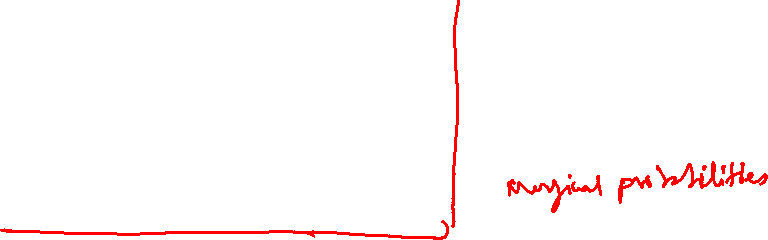 marginal probabilities